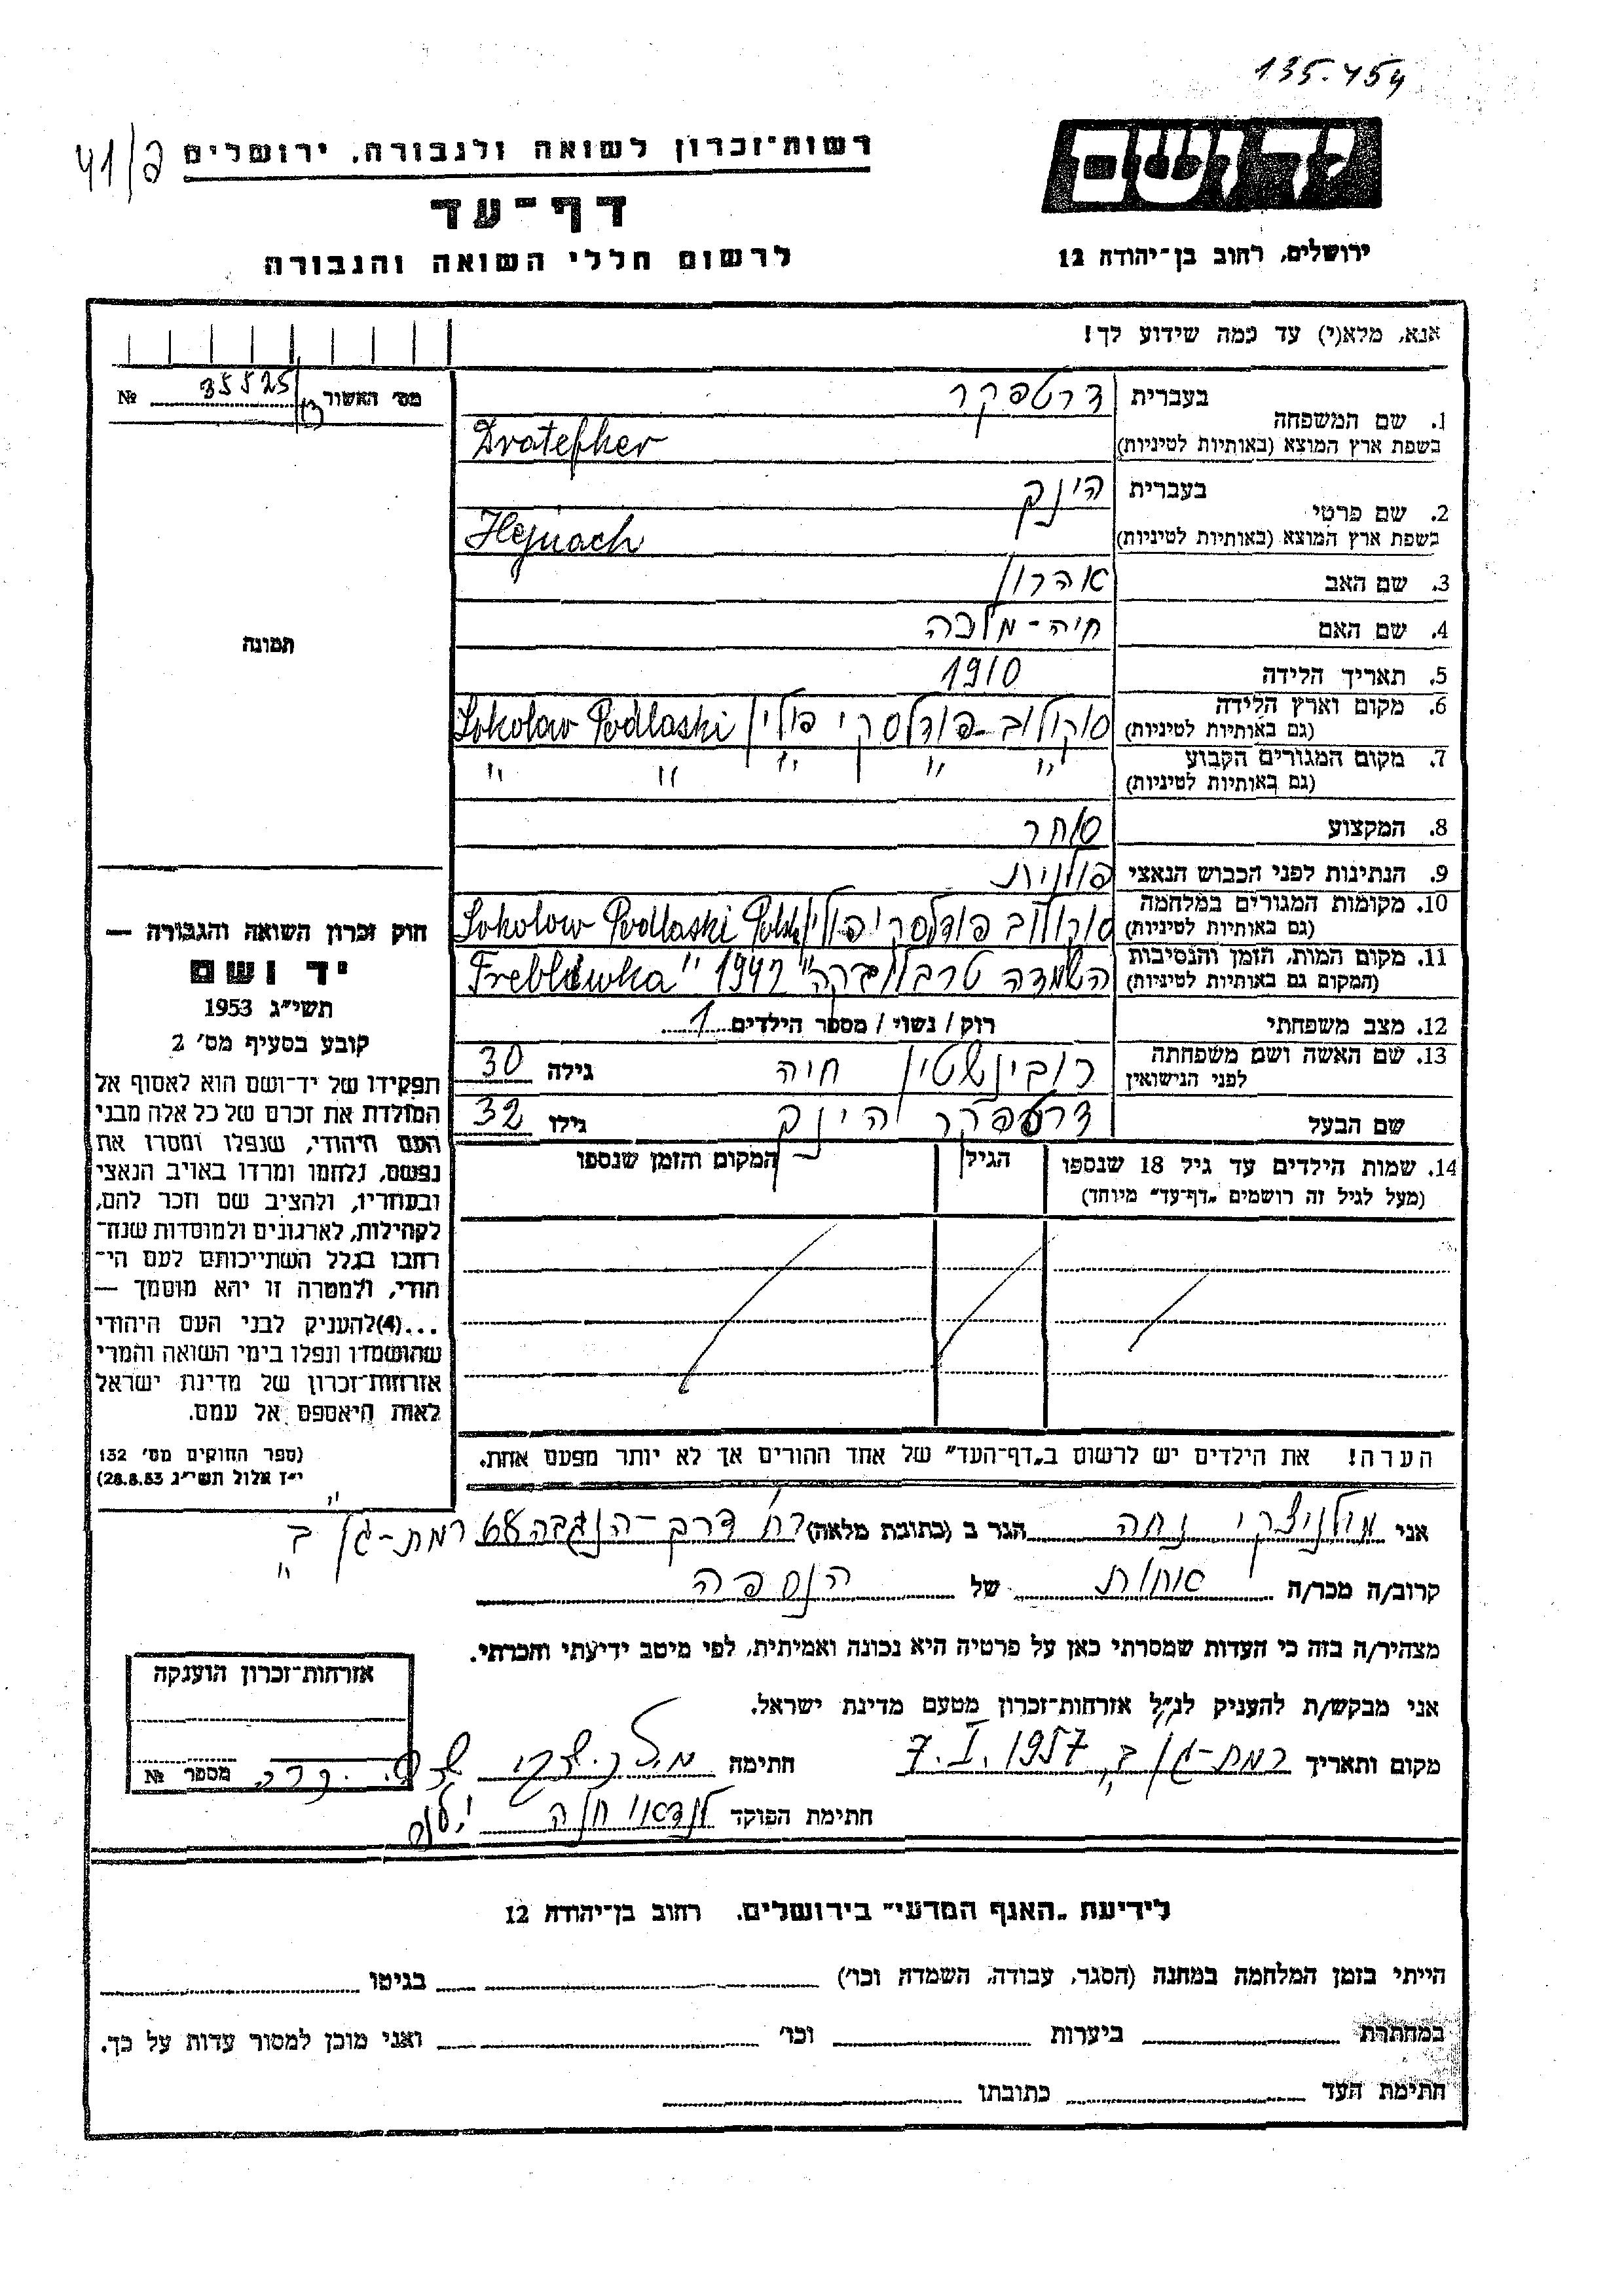 135.454
41/ב
רשות־זכרון לשואה ולגבורה, ירושלים
דף־עד
לרשום חללי השואה והגבורה
יד ושם
ירושלים, רחוב בן־יהודה 12
אנא, מלא(י) עד כמה שידוע לך!
מס' האשור 35525 №
1. שם המשפחה
בעברית דרטפקר
בשפת ארץ המוצא (באותיות לטיניות) Dratefker
2. שם פרטי
בעברית הינך
בשפת ארץ המוצא (באותיות לטיניות) Hejnoch
3. שם האב אהרון
4. שם האם חיה-מלכה
5. תאריך הלידה 1910
6. מקום וארץ הלידה (גם באותיות לטיניות) סוקולוב-פודלסקי פולין Sokolow Podlaski
7. מקום המגורים הקבוע (גם באותיות לטיניות) " " " " "
8. המקצוע סוחר
9. הנתינות לפני הכבוש הנאצי פולנית
10. מקומות המגורים במלחמה (גם באותיות לטיניות) סוקולוב פודלסקי פולין Sokolow Podlaski Polska
11. מקום המות, הזמן והנסיבות (המקום גם באותיות לטיניות) השמדה טרבלינקה" 1942 "Treblinka
12. מצב משפחתי רוק / נשוי / מספר הילדים 1
13. שם האשה ושם משפחתה לפני הנישואין רובינשטין חיה גילה 30
שם הבעל דרטפקר הינך גילו 32
14. שמות הילדים עד גיל 18 שנספו הגיל המקום והזמן שנספו
(מעל לגיל זה רושמים „דף־עד" מיוחד)
הערה! את הילדים יש לרשום ב„דף־העד" של אחד ההורים אך לא יותר מפעם אחת.
תמונה
חוק זכרון השואה והגבורה —
יד ושם
תשי"ג 1953
קובע בסעיף מס' 2
תפקידו של יד־ושם הוא לאסוף אל
המולדת את זכרם של כל אלה מבני
העם היהודי, שנפלו ומסרו את
נפשם, נלחמו ומרדו באויב הנאצי
ובעוזריו, ולהציב שם וזכר להם,
לקהילות, לארגונים ולמוסדות שנח־
רבו בגלל השתייכותם לעם הי־
הודי, ולמטרה זו יהא מוסמך —
...(4)להעניק לבני העם היהודי
שהושמדו ונפלו בימי השואה והמרי
אזרחות־זכרון של מדינת ישראל
לאות היאספם אל עמם.
(ספר החוקים מס' 132
י"ז אלול תשי"ג 28.8.53)
אני מולניצקי נחה הגר ב (כתובת מלאה) רח' דרך-הנגבה רמת-גן ב'
קרוב/ה מכר/ה אחות של הנספה
מצהיר/ה בזה כי העדות שמסרתי כאן על פרטיה היא נכונה ואמיתית, לפי מיטב ידיעתי והכרתי.
אני מבקש/ת להעניק לנ"ל אזרחות־זכרון מטעם מדינת ישראל.
מקום ותאריך רמת-גן ב, 7.I.1957 חתימה
חתימת הפוקד לנדאוי חנה
אזרחות־זכרון הוענקה
מספר №
לידיעת „האגף המדעי" בירושלים, רחוב בן־יהודה 12
הייתי בזמן המלחמה במחנה (הסגר, עבודה, השמדה וכו') בגיטו
במחתרת ביערות וכו' ואני מוכן למסור עדות על כך.
חתימת העד כתובתו